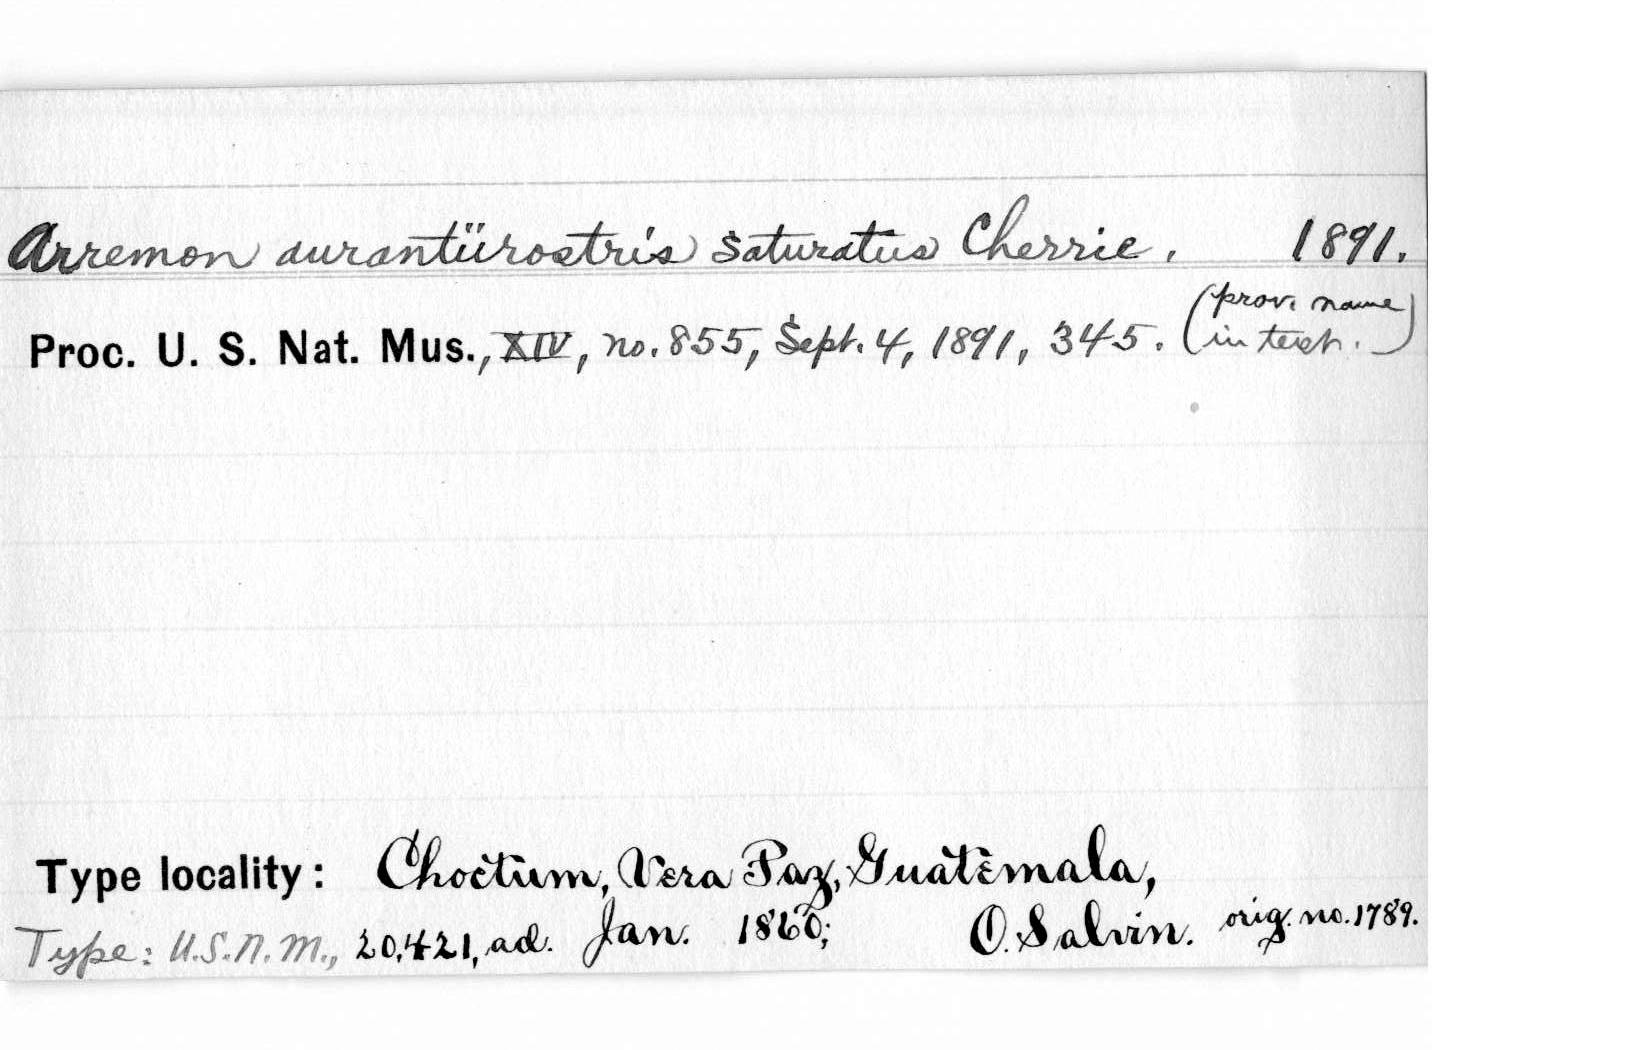 Arremon aurantiirostris saturatus Cherrie. 1891.
Proc. U. S. Nat. Mus., XIV, no. 855, Sept. 4, 1891, 345. (prov. name
in text.)
Type locality: Choctum, Vera Paz, Guatemala,
Type: U.S.N.M., 20,421, ad. Jan. 1860; O. Salvin. orig. no. 1789.